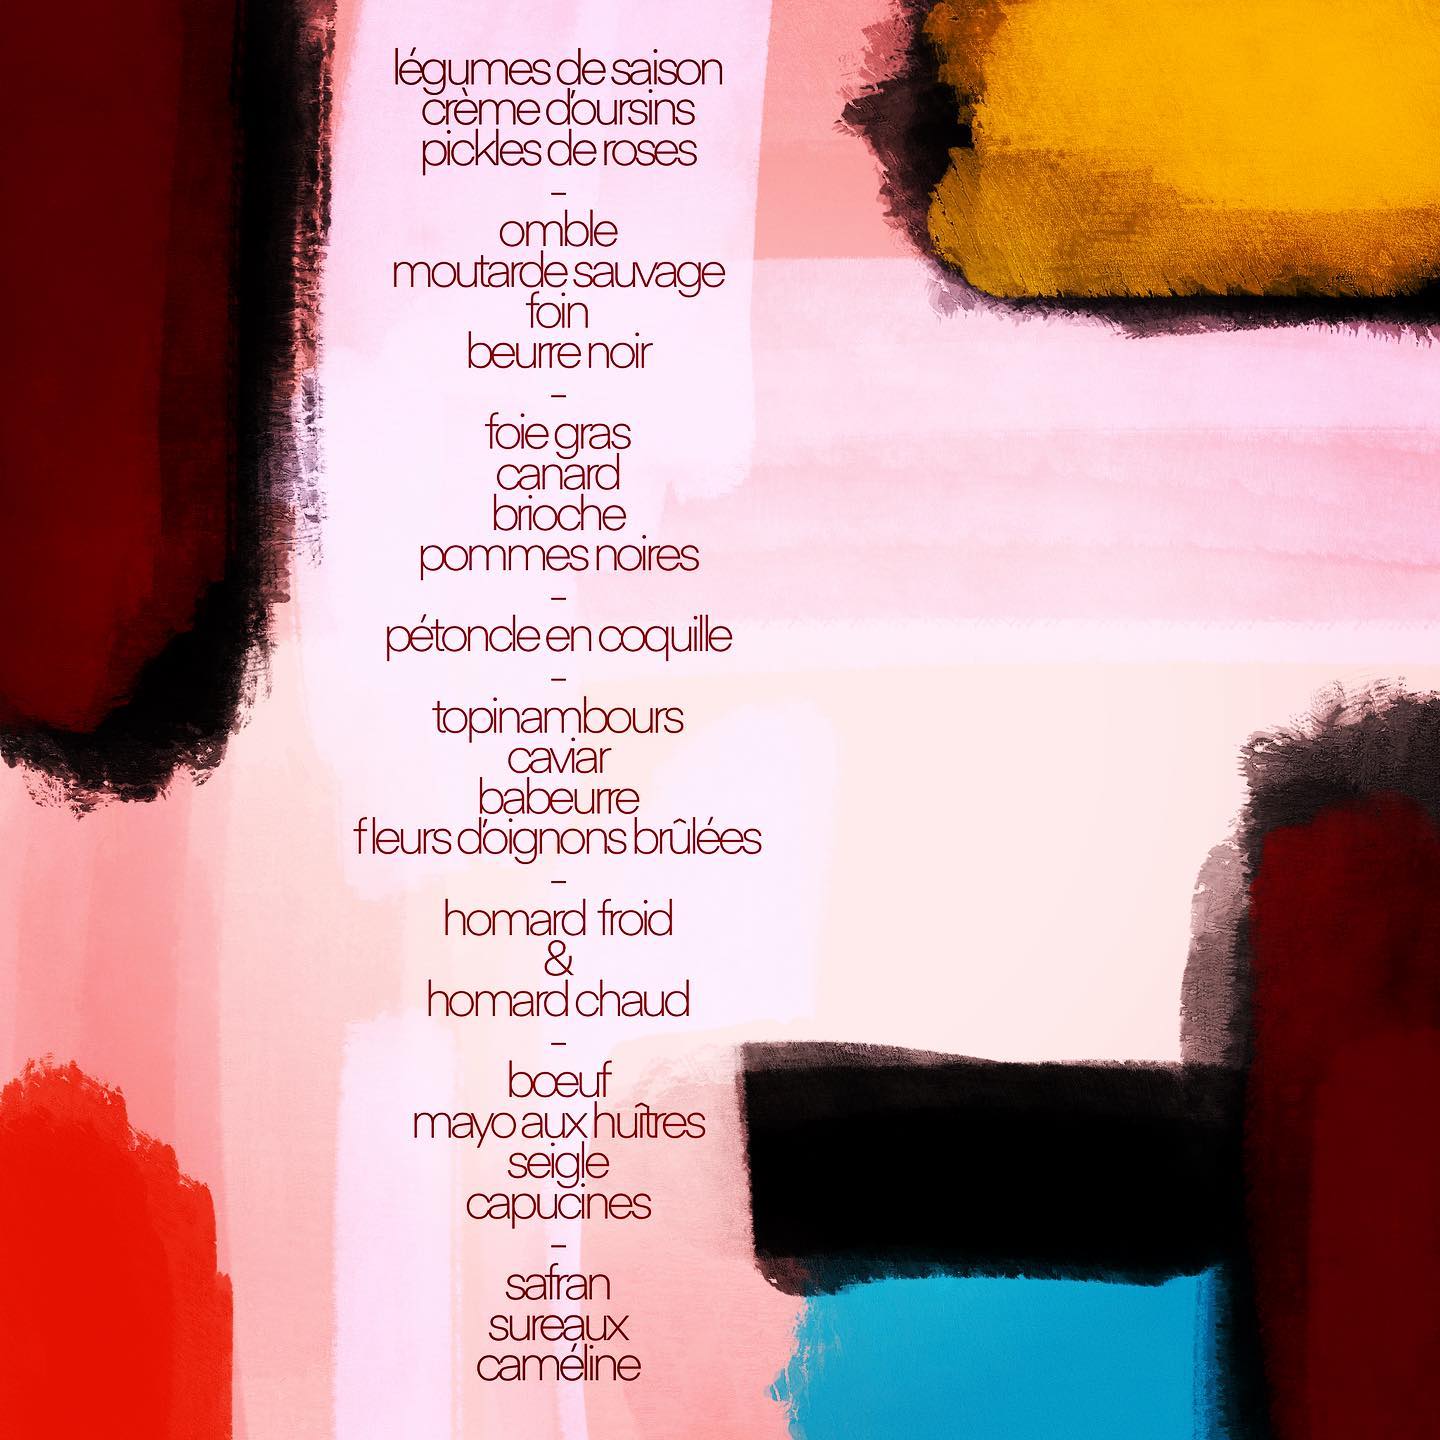 légumes de saison
crème d'oursins
pickles de roses
–
omble
moutarde sauvage
foin
beurre noir
–
foie gras
canard
brioche
pommes noires
–
pétoncle en coquille
–
topinambours
caviar
babeurre
fleurs d'oignons brûlées
–
homard froid
&
homard chaud
–
bœuf
mayo aux huîtres
seigle
capucines
–
safran
sureaux
caméline